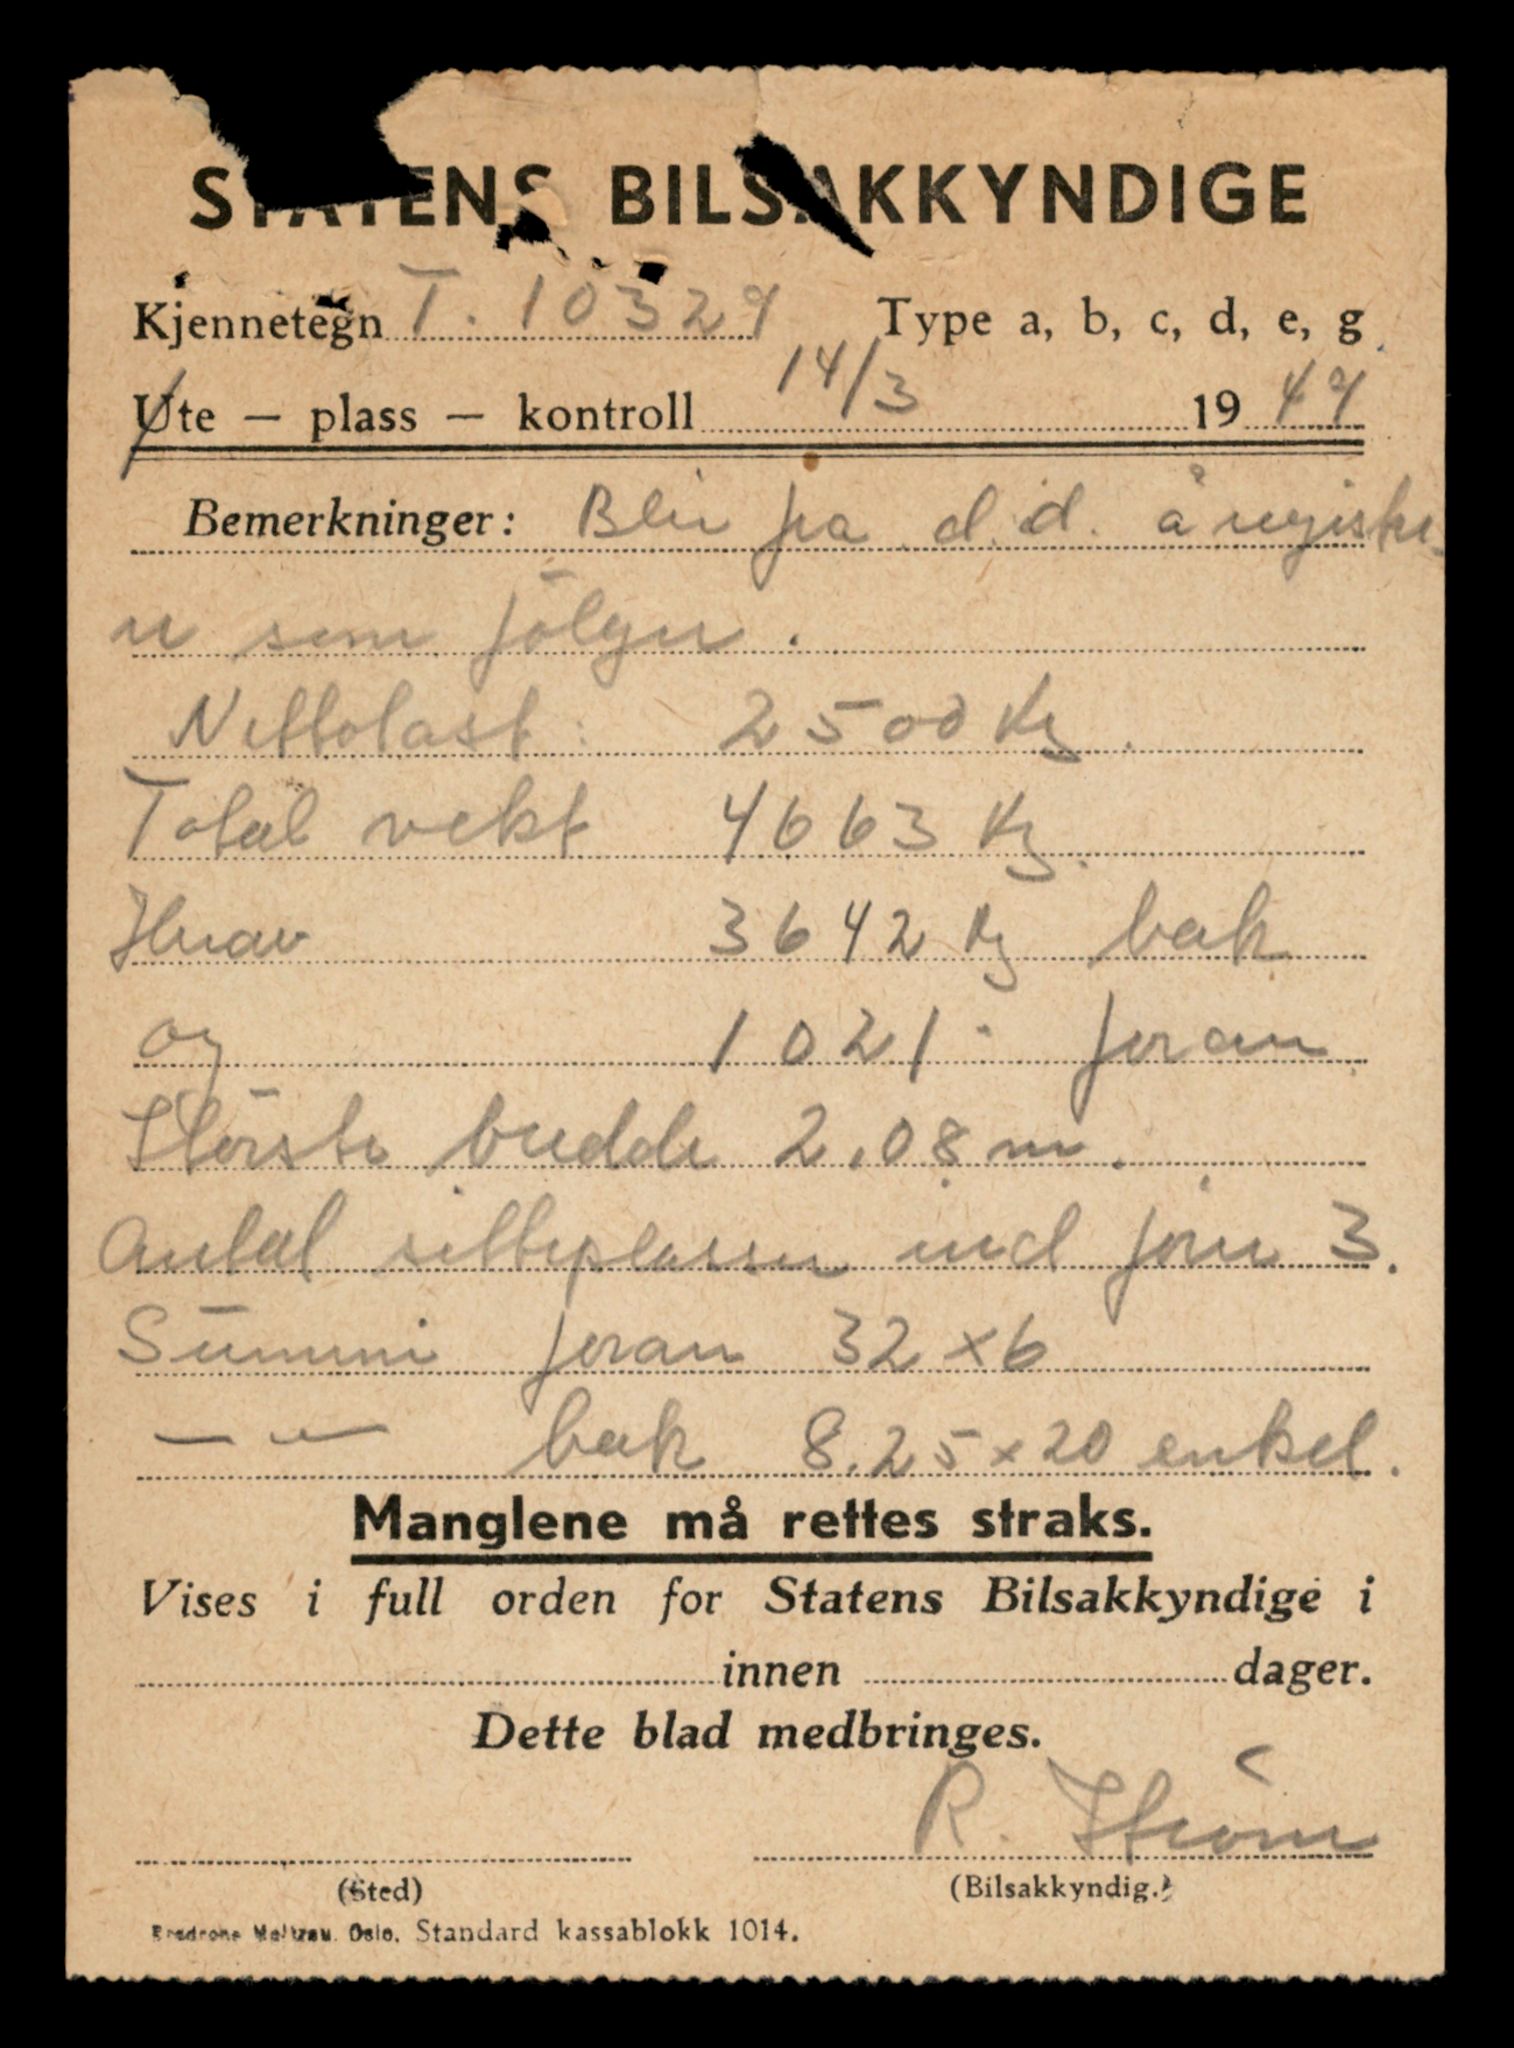 STATENS BILSAKKYNDIGE
Kjennetegn T. 10329 Type a, b, c, d, e, g
Ute — plass — kontroll 14/3 1949
Bemerkninger: Blir fra d.d. å registre-
re som følger.
Nettolast: 2500 kg.
Total vekt 4663 kg.
Hvrav 3642 kg bak
og 1021 " foran
Störste bredde 2.08 m.
Antal sitteplasser incl förer 3.
Gummi foran 32 x 6
— " — bak 8.25 x 20 enkel.
Manglene må rettes straks.
Vises i full orden for Statens Bilsakkyndige i
innen dager.
Dette blad medbringes.
R. Ström
(Sted) (Bilsakkyndig.)
Brødrene Meltzau. Oslo. Standard kassablokk 1014.